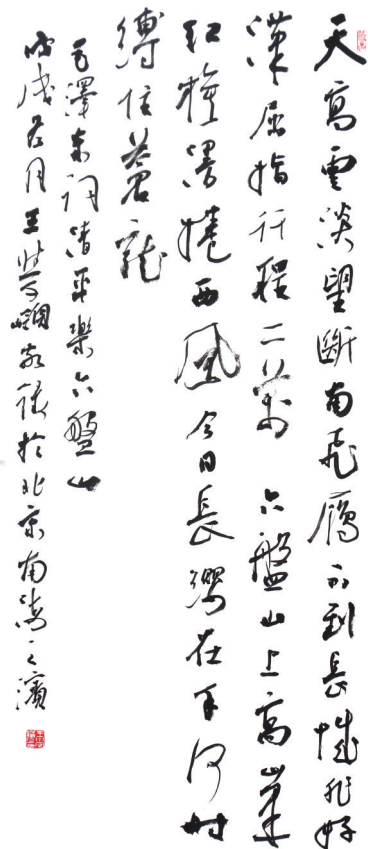 天高雲淡望斷南飛雁不到長城非好
漢屈指行程二萬六盤山上高峰
紅旗漫捲西風今日長纓在手何時
縛住蒼龍
毛澤東詞清平樂六盤山
戊戌月王錄於北京南海之濱